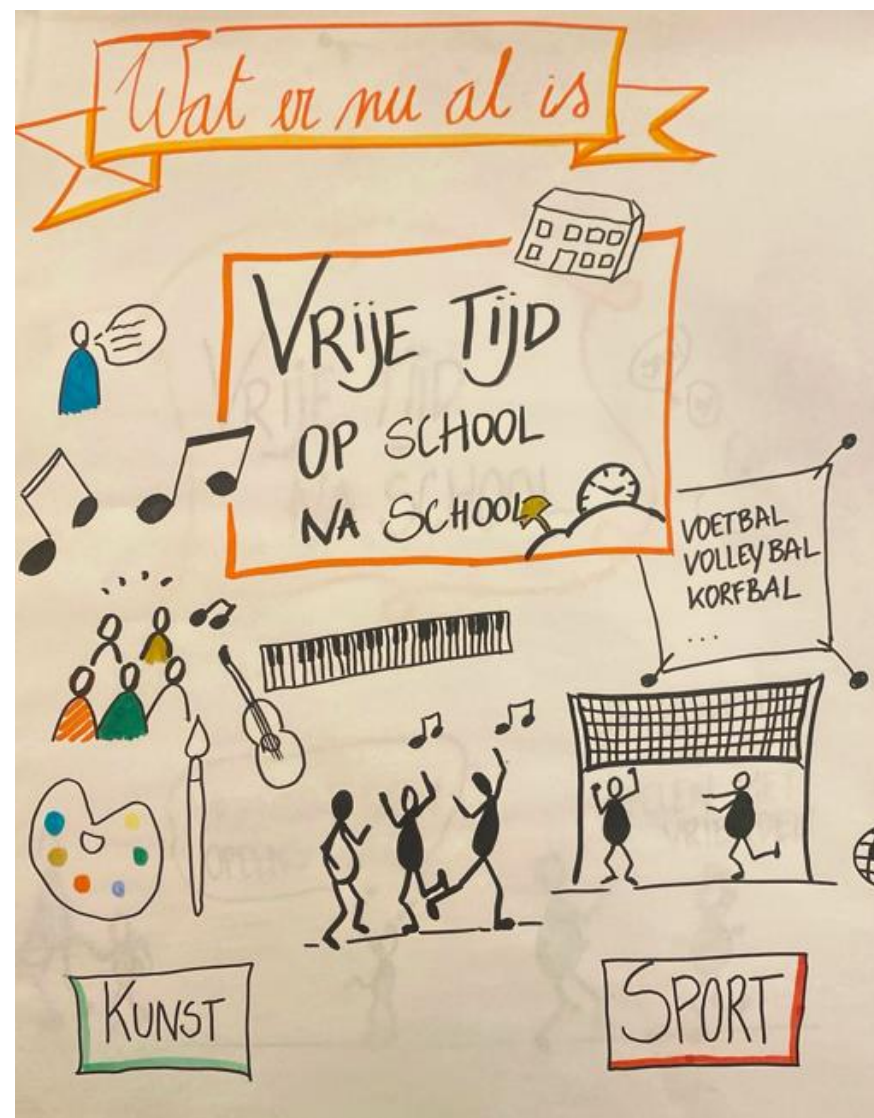 Wat er nu al is
VRIJE TIJD
OP SCHOOL
NA SCHOOL
VOETBAL
VOLLEYBAL
KORFBAL
...
KUNST
SPORT